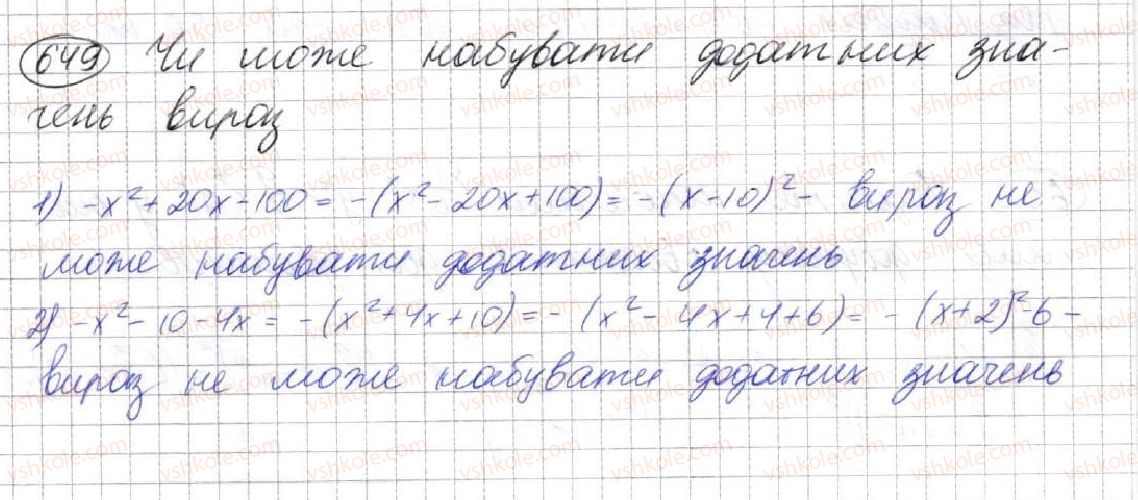 649 Чи може набувати додатних зна-
чень вираз
1) -x² + 20x - 100 = -(x² - 20x + 100) = -(x - 10)² - вираз не
може набувати додатних значень
2) -x² - 10 - 4x = -(x² + 4x + 10) = -(x² - 4x + 4 + 6) = -(x + 2)² - 6 -
вираз не може набувати додатних значень